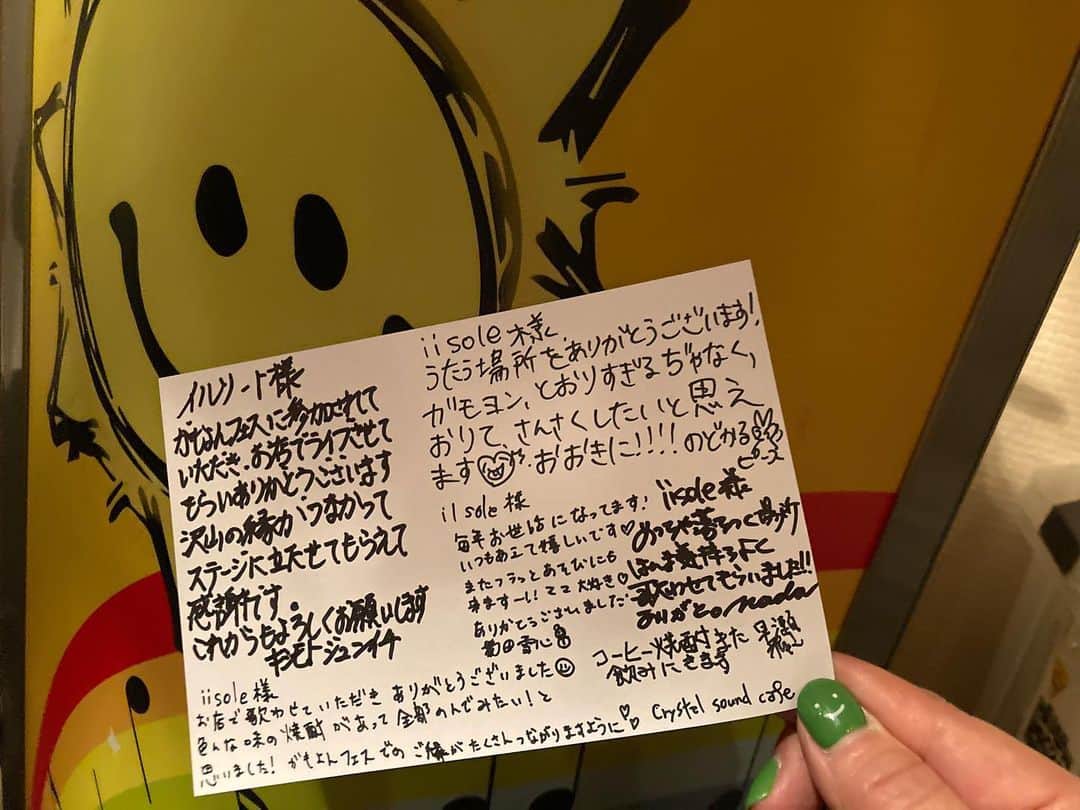 イルソーレ様
がもよんフェスに参加されて
いただき、お店でライブさせて
もらいありがとうございます
沢山の縁がつながって
ステージに立たせてもらえて
感謝です。
これからもよろしくお願いします
キモトジュンイチ
iisole様
うたう場所をありがとうございます!
ガモヨン、とおりすぎるぢゃなく、
おりて、さんさくしたいと思え
ます おおきに!!!! のどかる
ピース
iisole様
毎年お世話になってます!
いつもあえて嬉しいです♡
またフラっとあそびにも
きますー!ココ大好き♡
ありがとうございました
iisole様
めっちゃ落ちつく場所で
ほんま気持ちよく
歌わせてもらいました!!
ありがとo nada
コーヒー焼酎付きた
飲みにきます
iisole様
お店で歌わせていただき ありがとうございました☺
色んな味の焼酎があって全部のんでみたい!と
思いました! がもよんフェスでのご縁がたくさんつながりますように♡
Crystal sound cafe